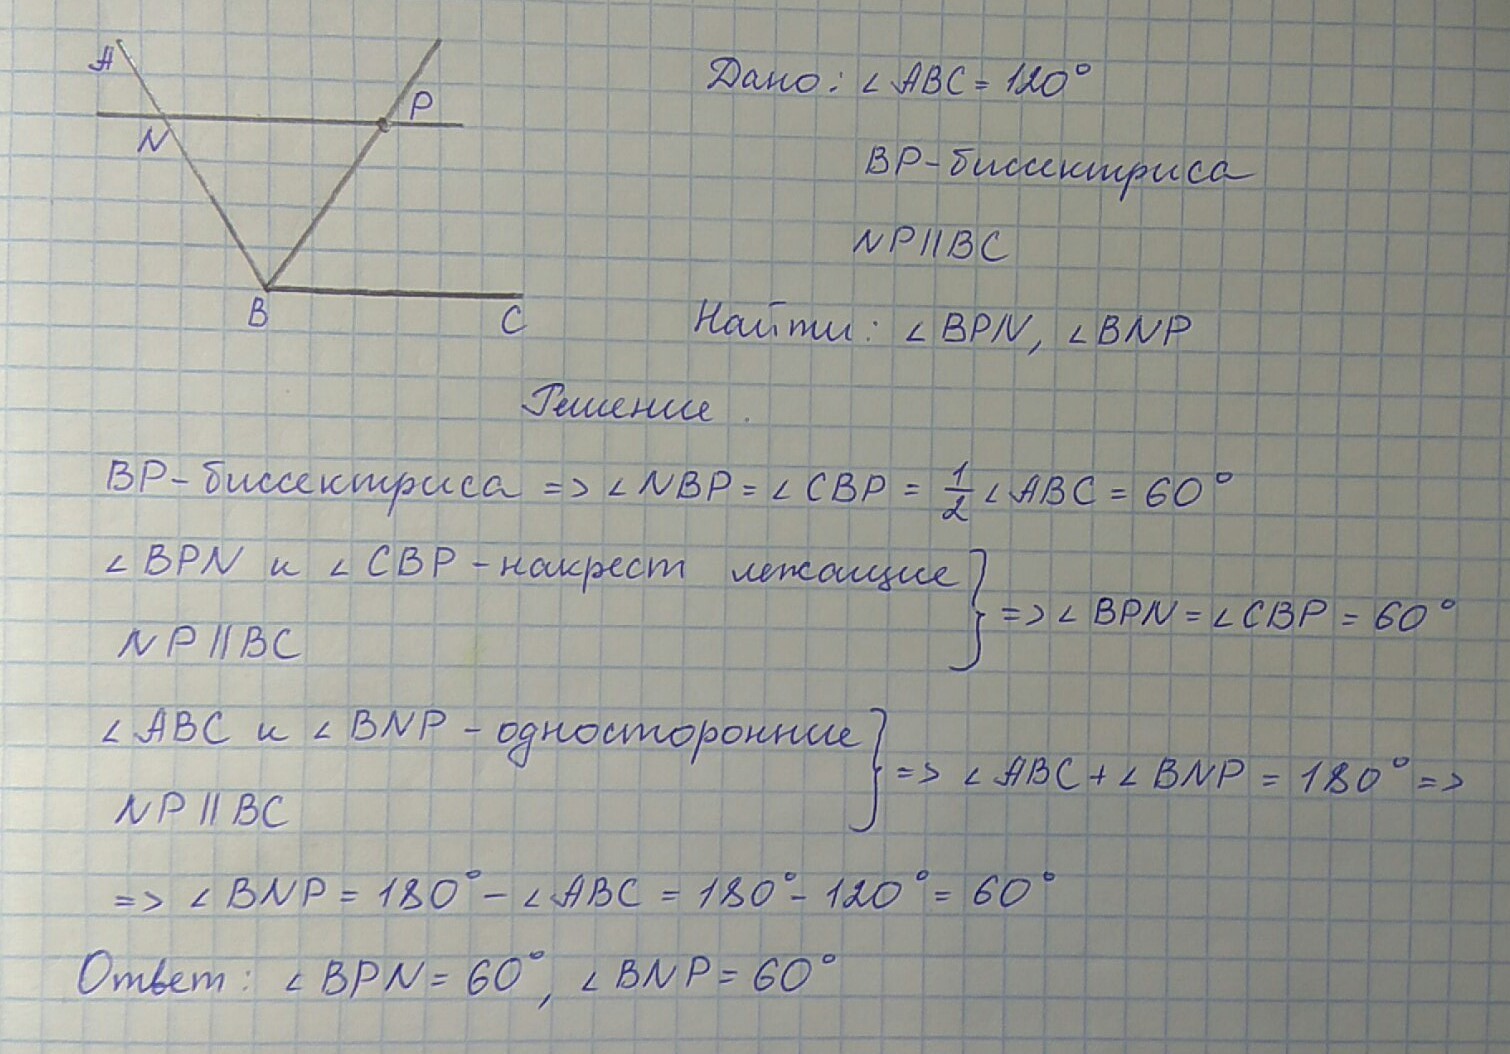 A
P
N
B
C
Дано: ∠ABC = 120°
BP - биссектриса
NP || BC
Найти: ∠BPN, ∠BNP
Решение.
BP - биссектриса => ∠NBP = ∠CBP = 1/2 ∠ABC = 60°
∠BPN и ∠CBP - накрест лежащие
NP || BC
} => ∠BPN = ∠CBP = 60°
∠ABC и ∠BNP - односторонние
NP || BC
} => ∠ABC + ∠BNP = 180° =>
=> ∠BNP = 180° - ∠ABC = 180° - 120° = 60°
Ответ: ∠BPN = 60°, ∠BNP = 60°